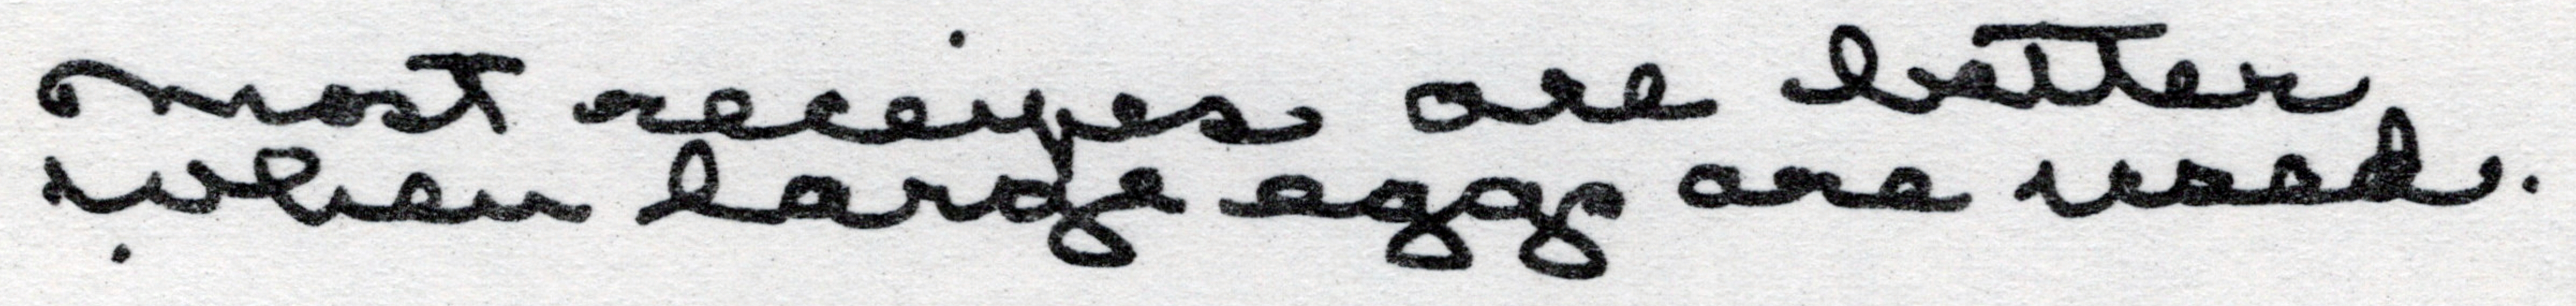 Most receipes are better
when large eggs are used.